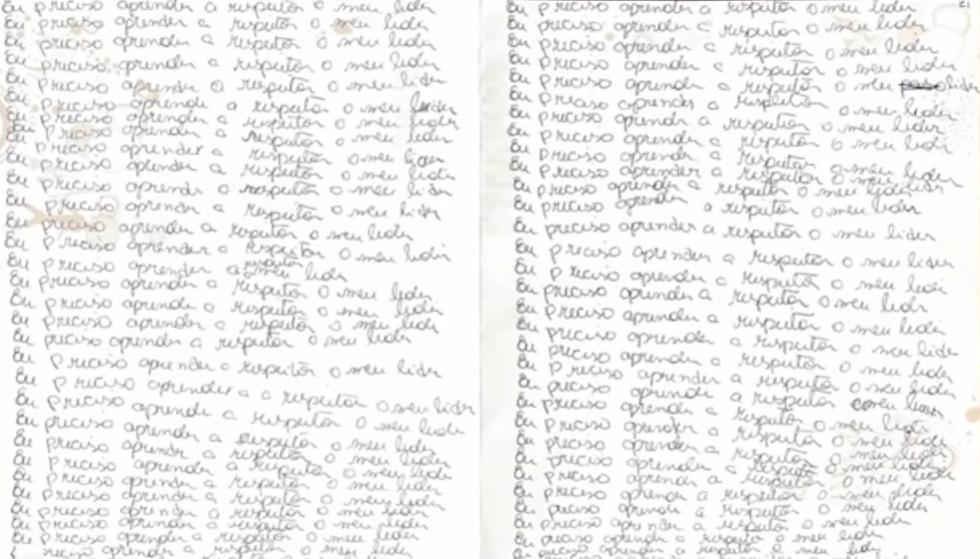 Eu preciso aprender a respeitar o meu lider
Eu preciso aprender a respeitar o meu lider
Eu preciso aprender a respeitar o meu lider
Eu preciso aprender a respeitar o meu lider
Eu preciso aprender a respeitar o meu lider
Eu preciso aprender a respeitar o meu lider
Eu preciso aprender a respeitar o meu lider
Eu preciso aprender a respeitar o meu lider
Eu preciso aprender a respeitar o meu lider
Eu preciso aprender a respeitar o meu lider
Eu preciso aprender a respeitar o meu lider
Eu preciso aprender a respeitar o meu lider
Eu preciso aprender a respeitar o meu lider
Eu preciso aprender a respeitar o meu lider
Eu preciso aprender a respeitar o meu lider
Eu preciso aprender a respeitar o meu lider
Eu preciso aprender a respeitar o meu lider
Eu preciso aprender a respeitar o meu lider
Eu preciso aprender a respeitar o meu lider
Eu preciso aprender a respeitar o meu lider
Eu preciso aprender a a respeitar o meu lider
Eu preciso aprender a respeitar o meu lider
Eu preciso aprender a respeitar o meu lider
Eu preciso aprender a respeitar o meu lider
Eu preciso aprender a respeitar o meu lider
Eu preciso aprender a respeitar o meu lider
Eu preciso aprender a respeitar o meu lider
Eu preciso aprender a respeitar o meu lider
Eu preciso aprender a respeitar o meu lider
preciso aprender a respeitar o meu lider
21
Eu preciso aprender a respeitar o meu lider
Eu preciso aprender a respeitar o meu lider
Eu preciso aprender a respeitar o meu lider
Eu preciso aprender a respeitar o meu lider
Eu preciso aprender a respeitar o meu lider
Eu preciso aprender a respeitar o meu lider
Eu preciso aprender a respeitar o meu lider
Eu preciso aprender a respeitar o meu lider
Eu preciso aprender a respeitar o meu lider
Eu preciso aprender a respeitar o meu lider
Eu preciso aprender a respeitar o meu lider
Eu preciso aprender a respeitar o meu lider
Eu preciso aprender a respeitar o meu lider
Eu preciso aprender a respeitar o meu lider
Eu preciso aprender a respeitar o meu lider
Eu preciso aprender a respeitar o meu lider
Eu preciso aprender a respeitar o meu lider
Eu preciso aprender a respeitar o meu lider
Eu preciso aprender a respeitar o meu lider
Eu preciso aprender a respeitar o meu lider
Eu preciso aprender a respeitar o meu lider
Eu preciso aprender a respeitar o meu lider
Eu preciso aprender a respeitar o meu lider
Eu preciso aprender a respeitar o meu lider
Eu preciso aprender a respeitar o meu lider
Eu preciso aprender a respeitar o meu lider
Eu preciso aprender a respeitar o meu lider
Eu preciso aprender a respeitar o meu lider
Eu preciso aprender a respeitar o meu lider
Eu preciso aprender a respeitar o meu lider
Eu preciso aprender a respeitar o meu lider